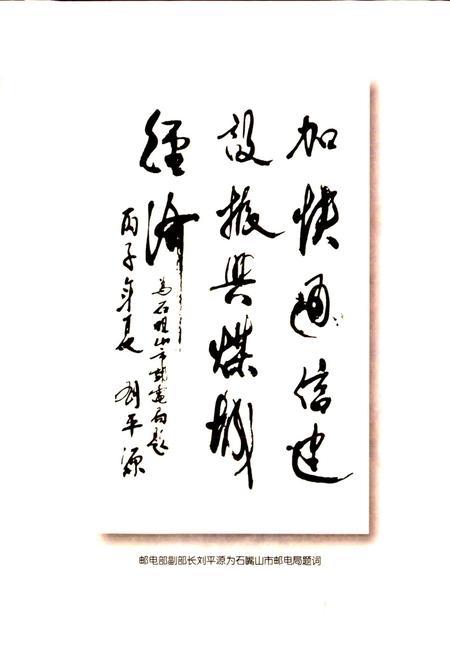 加快通信建
设振兴煤城
经济
为石嘴山市邮电局题
丙子年夏 刘平源
邮电部副部长刘平源为石嘴山市邮电局题词